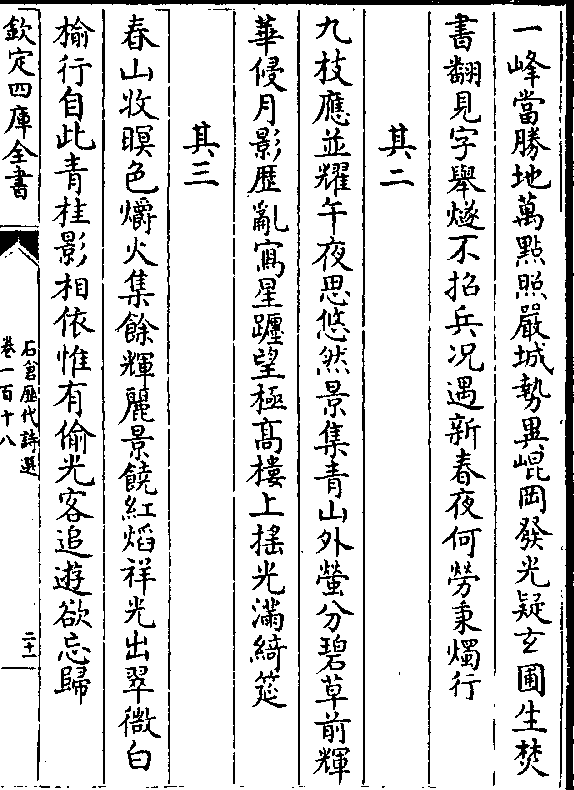 一峰當勝地萬點照嚴城勢異崐岡發光疑玄圃生焚
書翻見字舉燧不招兵況遇新春夜何勞秉燭行
其二
九枝應並耀午夜思悠然景集青山外螢分碧草前輝
華侵月影歴亂寫星躔望極髙樓上揺光滿綺筵
其三
春山收暝色爝火集餘輝麗景饒紅焰祥光出翠微白
榆行自此青桂影相依惟有偷光客追遊欲忘歸
欽定四庫全書
石倉歴代詩選
卷一百十八
二十一